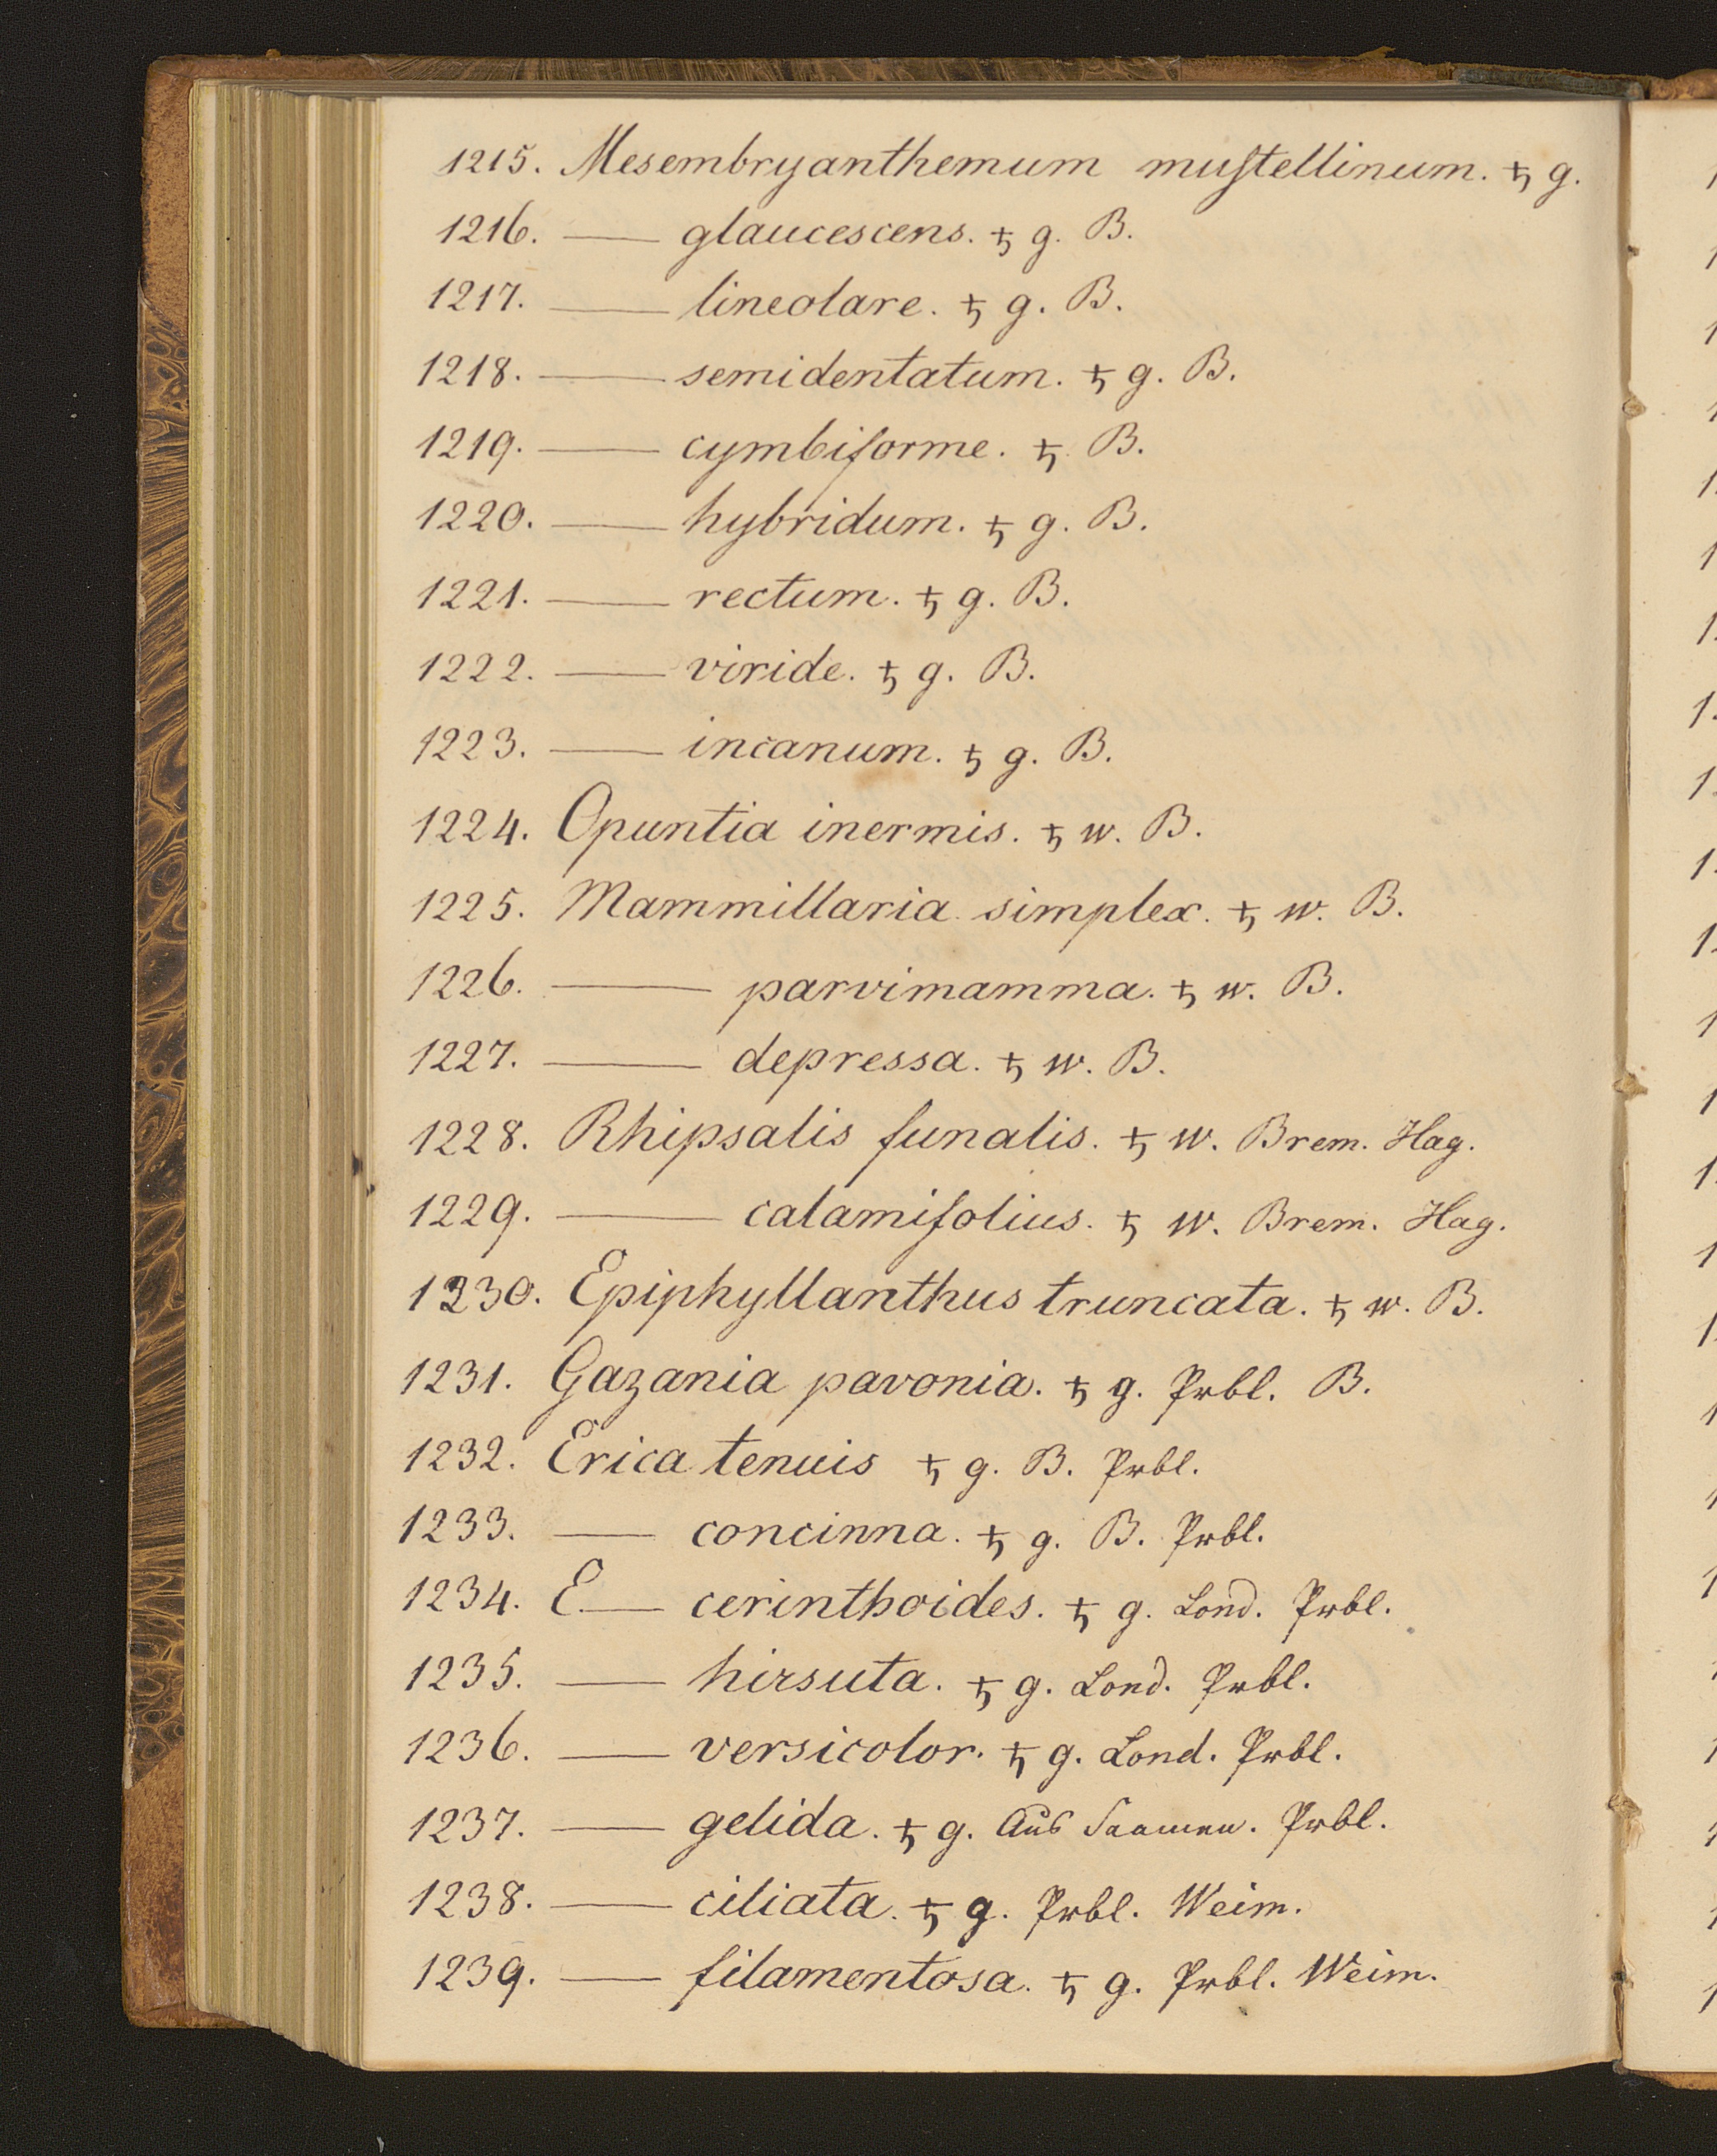 1215. Mesembryanthemum muſtellinum. ♄ g.
1216. —— glaucescens. ♄ g. B.
1217. —— lineolare. ♄ g. B.
1218. —— semidentatum. ♄ g. B.
1219. —— cymbiforme. ♄ B.
1220. —— hybridum. ♄ g. B.
1221. —— rectum. ♄ g. B.
1222. —— viride. ♄ g. B.
1223. —— incanum. ♄ g. B.
1224. Opuntia inermis. ♄ w. B.
1225. Mammillaria simplex. ♄ w. B.
1226. —— parvimamma. ♄ w. B.
1227. —— depressa. ♄ w. B.
1228. Rhipsalis funalis. ♄ w. Brem. Hag.
1229. —— calamifolius. ♄ w. Brem. Hag.
1230. Epiphyllanthus truncata. ♄ w. B.
1231. Gazania pavonia. ♄ g. Prbl. B.
1232. Erica tenuis ♄ g. B. Prbl.
1233. —— concinna. ♄ g. B. Prbl.
1234. E.— cerinthoides. ♄ g. Lond. Prbl.
1235. —— hirsuta. ♄ g. Lond. Prbl.
1236. —— versicolor. ♄ g. Lond. Prbl.
1237. —— gelida. ♄ g. Aus Saamen. Prbl.
1238. —— ciliata. ♄ g. Prbl. Weim.
1239. —— filamentosa. ♄ g. Prbl. Weim.